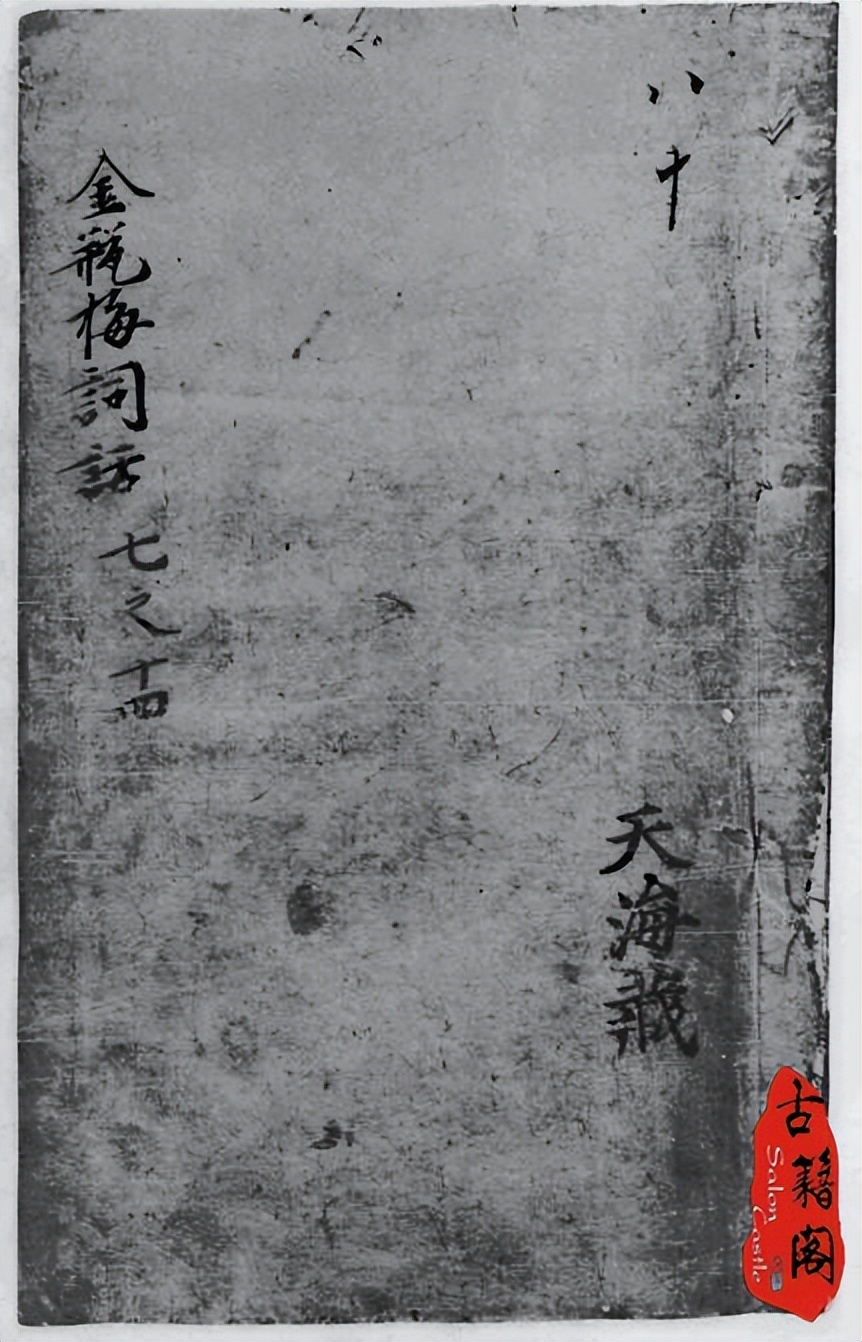 八十
天海蔵
金瓶梅詞話 七之十四
古籍阁
Salon Castle